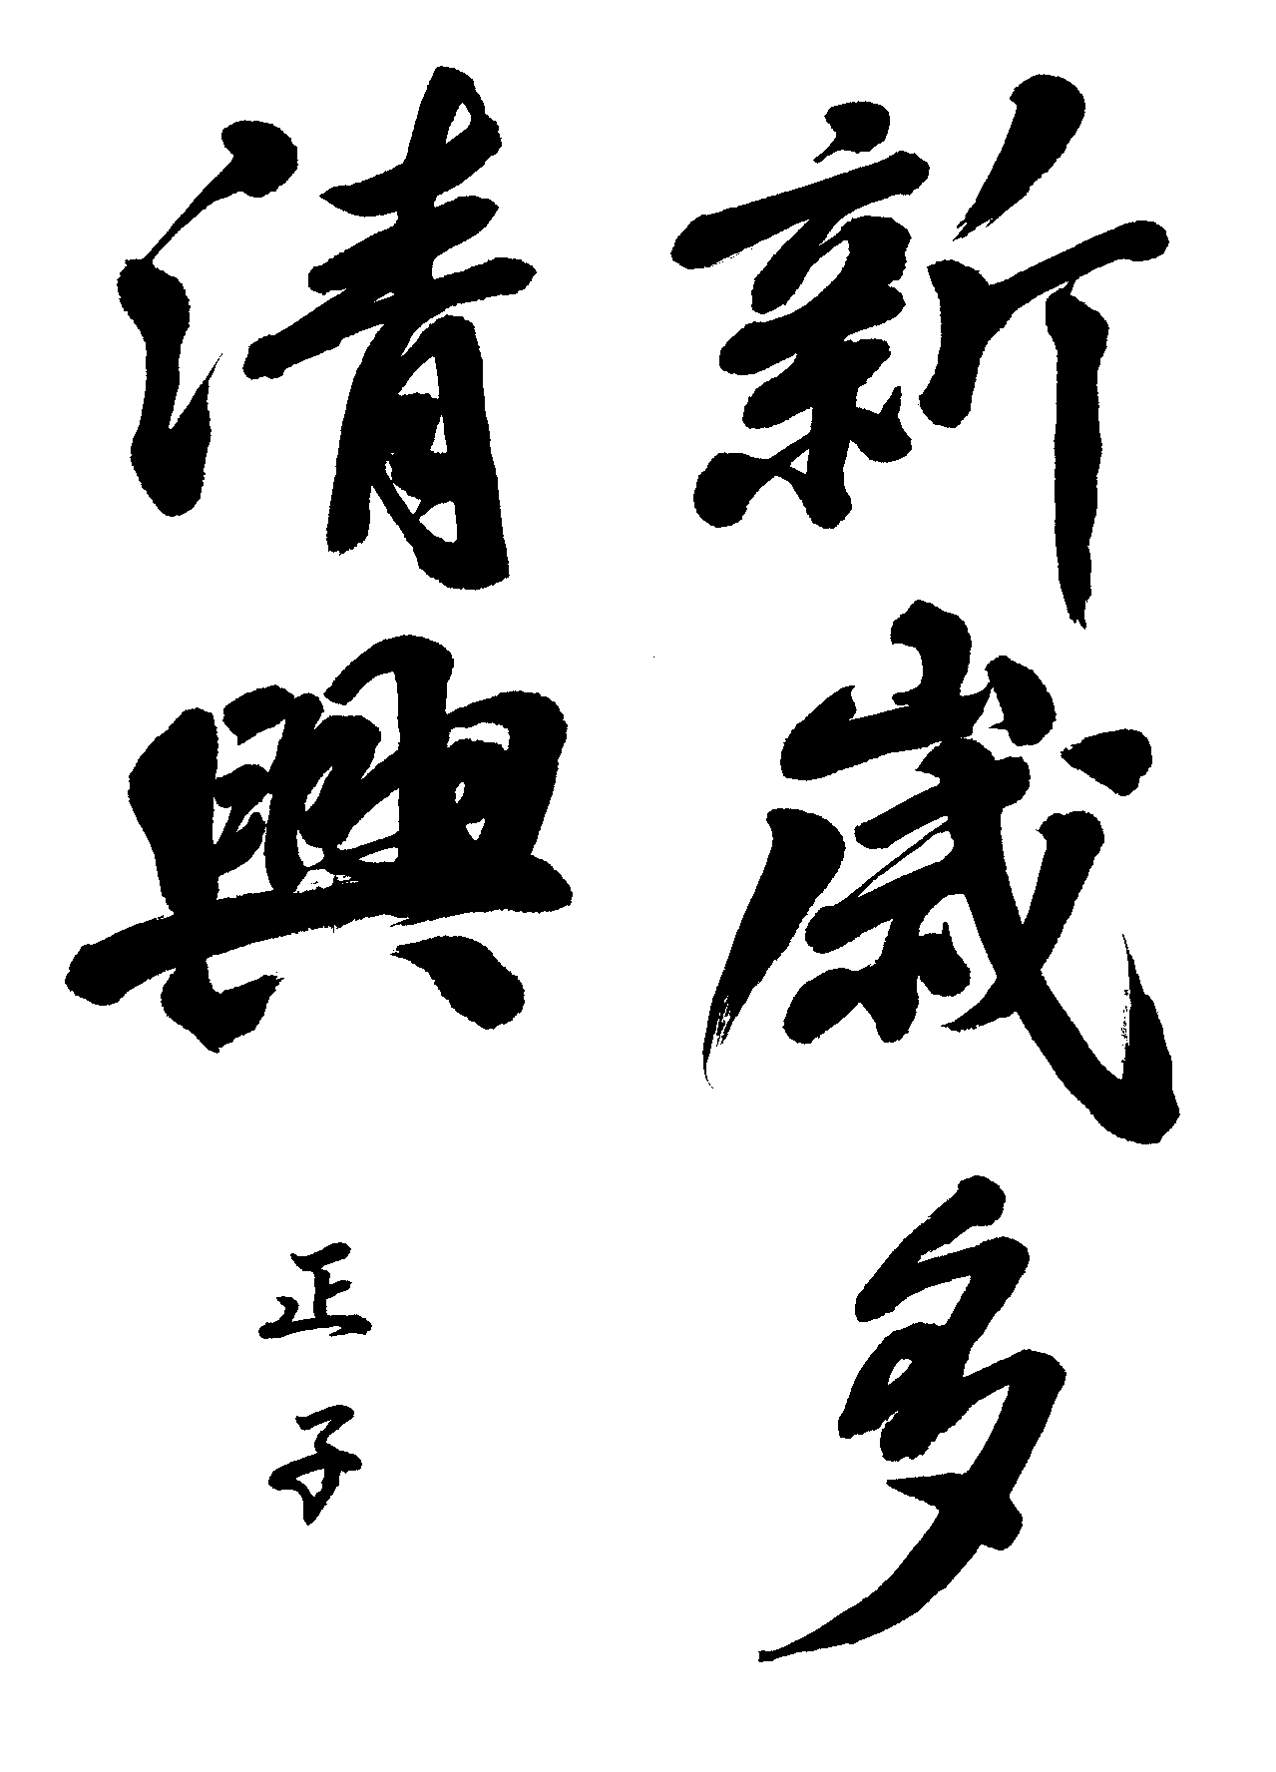 新歳多
清興
正子